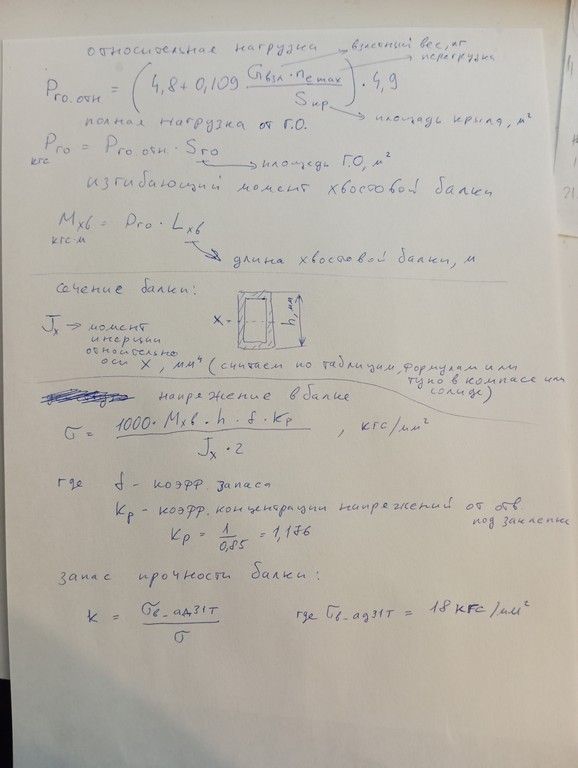 относительная нагрузка → взлетный вес, кг
→ перегрузка
Pго.отн = (4,8 + 0,109 Gвзл · nе max / Sкр) · 4,9
→ площадь крыла, м²
полная нагрузка от Г.О.
Pго = Pго.отн · Sго
кгс → площадь Г.О., м²
изгибающий момент хвостовой балки
Mхв = Pго · Lхв
кгс·м
→ длина хвостовой балки, м
сечение балки:
X h, мм
Jx → момент
инерции
относительно
оси X, мм⁴ (считаем по таблицам, формулам или
тупо в компасе или
солиде)
напряжение в балке
σ = 1000 · Mхв · h · f · Kр / Jx · 2 , кгс/мм²
где f - коэфф. запаса
Kр - коэфф. концентрации напряжений от отв.
под заклепки
Kр = 1 / 0,85 = 1,176
запас прочности балки:
k = σв_ад31т / σ где σв_ад31т = 18 кгс/мм²